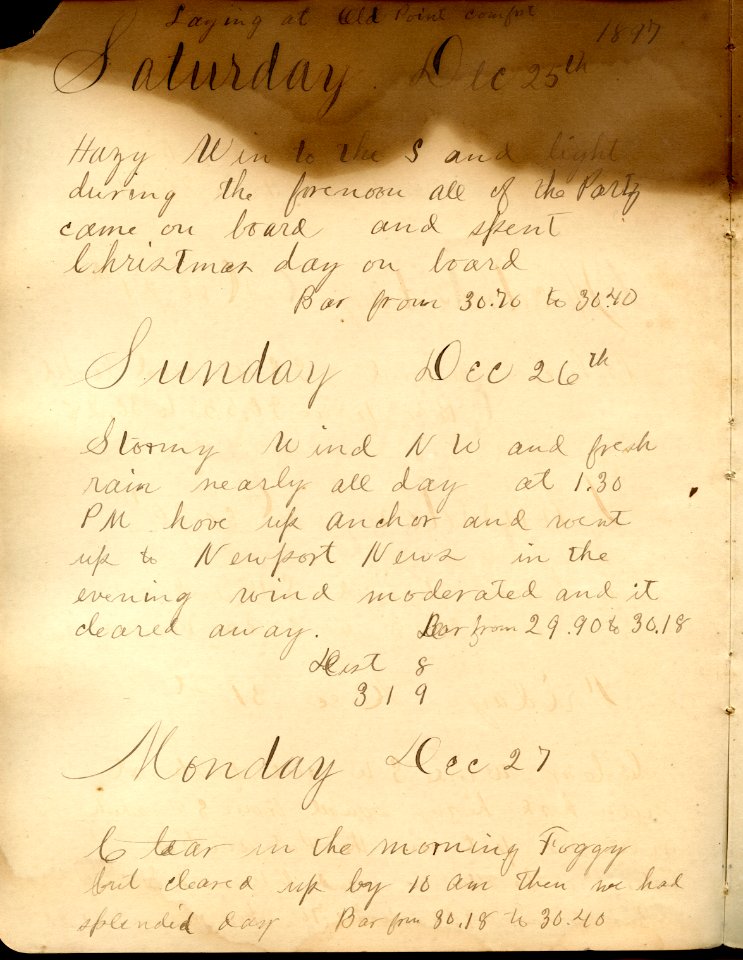 Laying at Old Point comfort
1897
Saturday Dec 25th
Hazy Win to the S and light
during the forenoon all of the Party
came on board and spent
Christmas day on board
Bar from 30.70 to 30.40
Sunday Dec 26th
Stormy Wind N W and fresh
rain nearly all day at 1.30
PM hove up anchor and went
up to Newport News in the
evening wind moderated and it
cleared away. Bar from 29.90 to 30.18
Dist 8
319
Monday Dec 27
Clear in the morning Foggy
but cleared up by 10 am then we had
splendid day Bar from 30.18 to 30.40